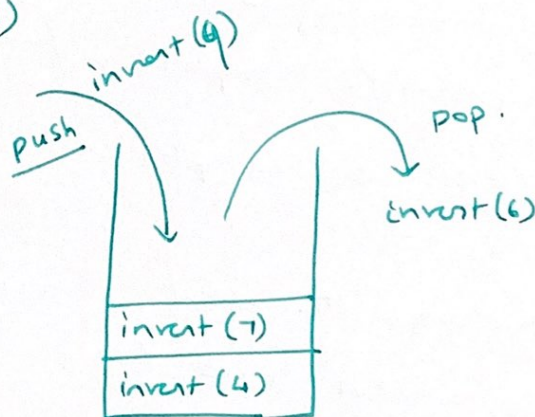 )
invert(
push
pop.
invert(6)
invert(7)
invert(4)